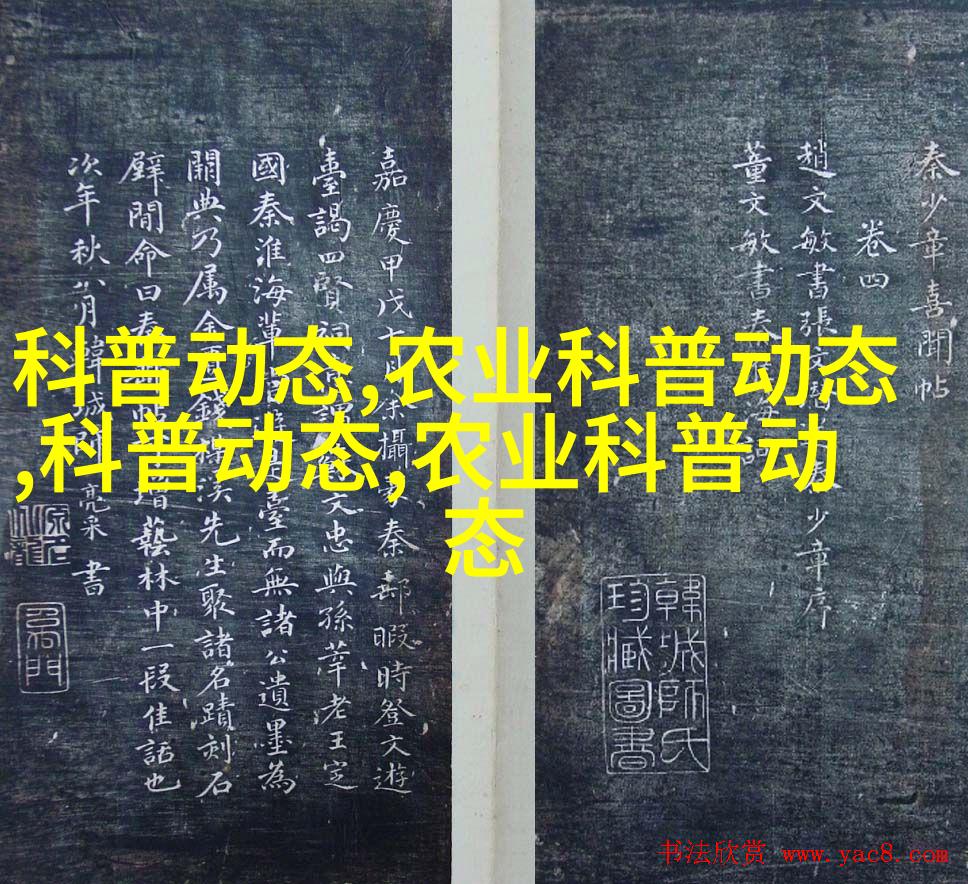 科普动态,农业科普动态
,科普动态,农业科普动
态
秦少章喜聞帖
卷四
趙文敏書張文 少章序
董文敏書
韓城師氏珍臧圖書
嘉慶甲戌七 攝 秦郵暇時登文遊
臺謁四賢祠 文忠與孫莘老王定
國秦淮海輩 臺而無諸公遺墨為
闕典乃属金 錢 溪先生聚諸名蹟刻石
壁間命曰秦郵帖 增藝林中一段佳話也
次年秋八月韓城師亮采書
书法欣赏 www.yac8.com